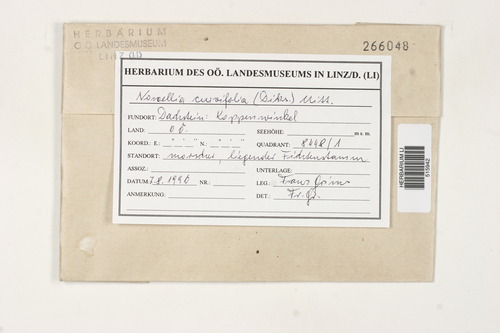 HERBARIUM
OÖ LANDESMUSEUM
LINZ
266048
HERBARIUM DES OÖ. LANDESMUSEUMS IN LINZ/D. (LI)
Nowellia curvifolia (Dicks.) Mitt.
FUNDORT: Dachstein: Koppenwinkel
LAND: OÖ. SEEHÖHE: m s. m.
KOORD.: E.: ° ' " N.: ° ' " QUADRANT: 8448/1
STANDORT: morscher, liegender Fichtenstamm
ASSOZ.: UNTERLAGE:
DATUM: 7.8.1990 NR.: LEG.: Franz Grims
ANMERKUNG: DET.: Fr. Gr.
HERBARIUM LI
515942